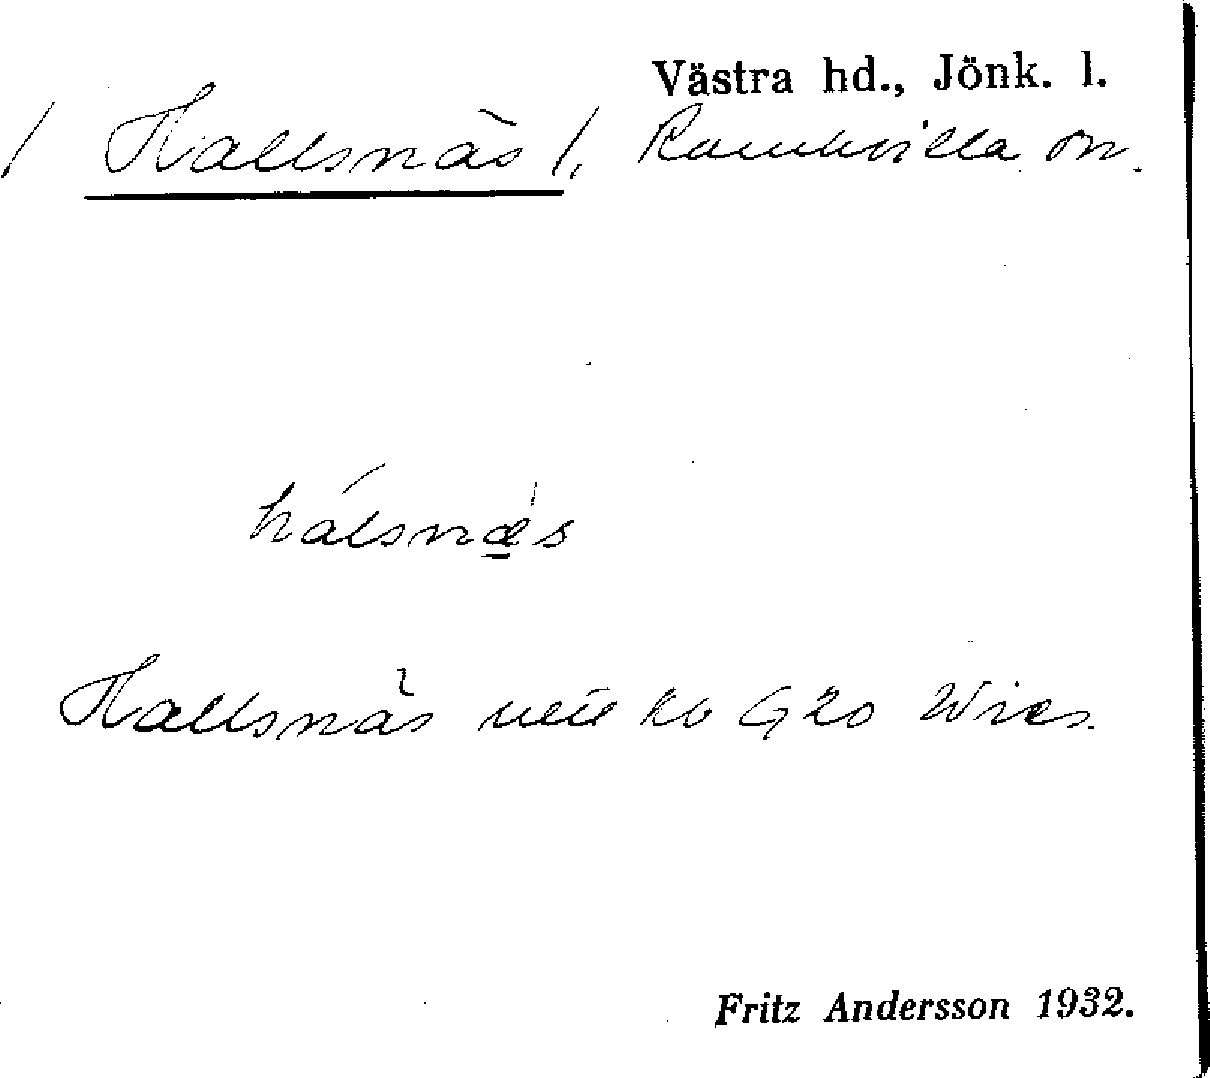 Västra hd., Jönk. l.
/ Hallsnäs /, Ramkvilla sn.
hálsnæ̱s
Hallsnäs Wies.
Fritz Andersson 1932.